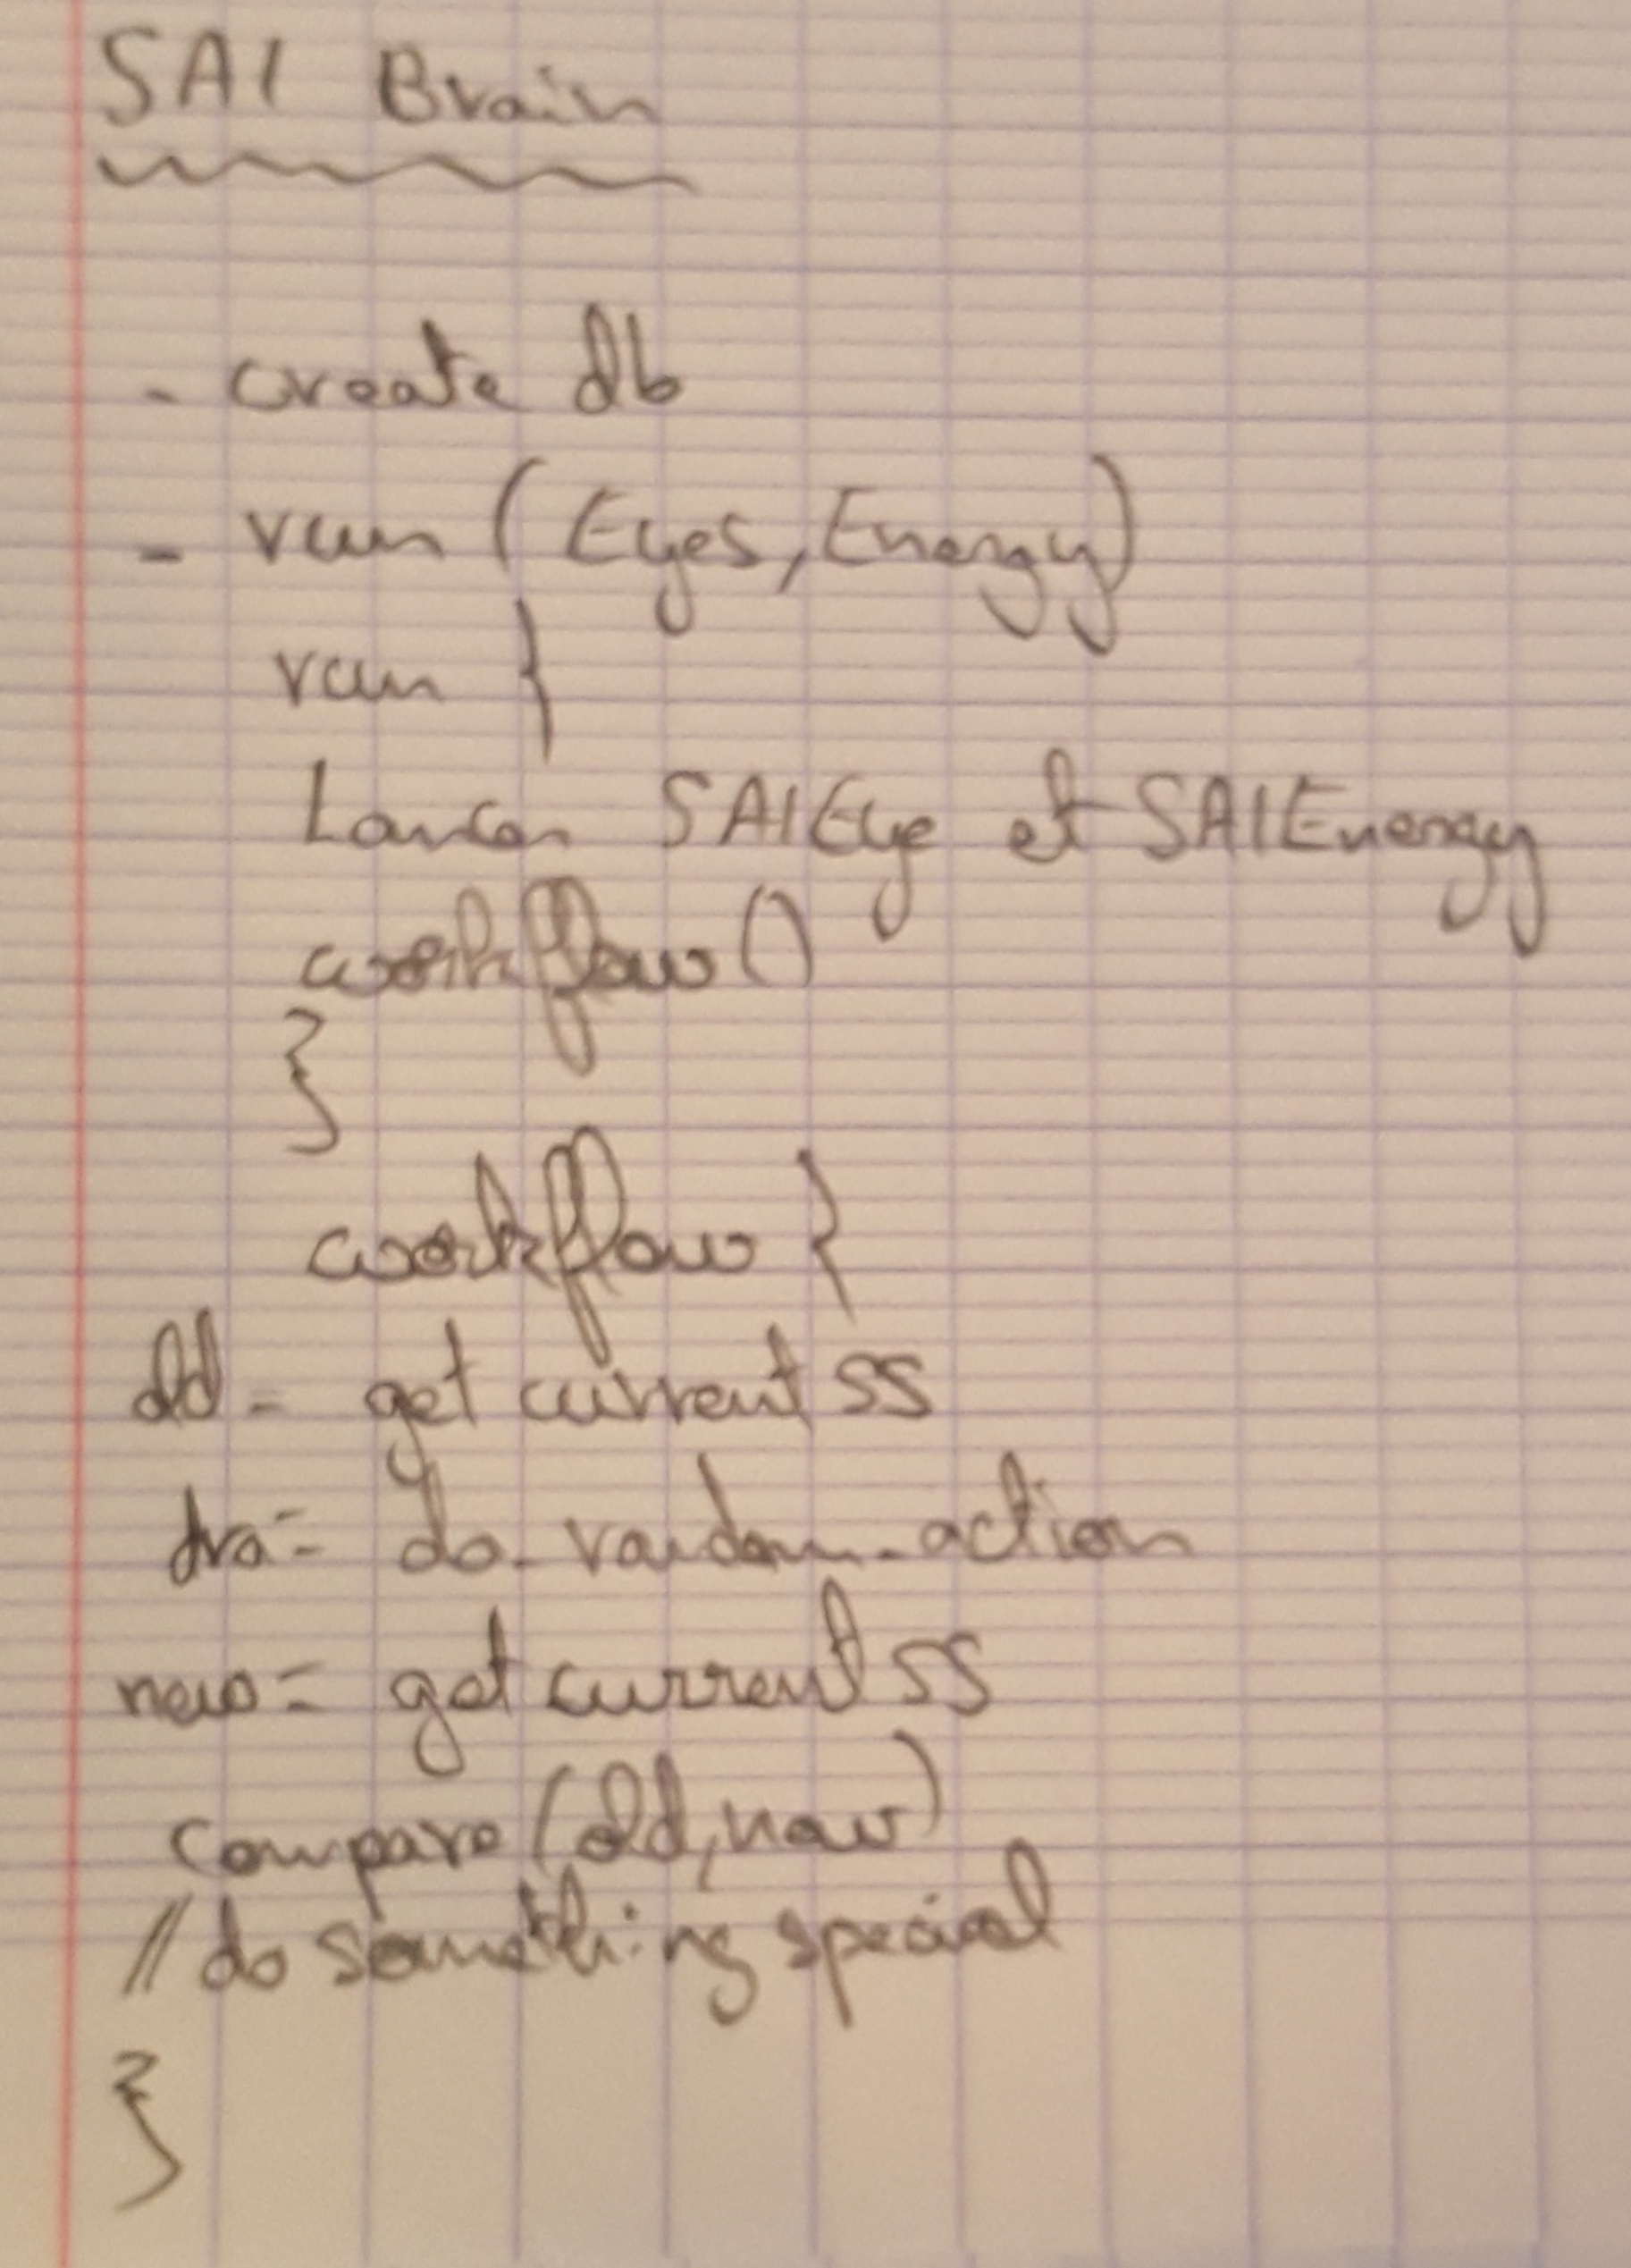 SAI Brain
- create db
- run (Eyes, Energy)
run {
Lancer SAIEye et SAIEnergy
workflow()
}
workflow {
old = get current SS
dra = do_random_action
new = get current SS
compare (old, new)
// do something special
}